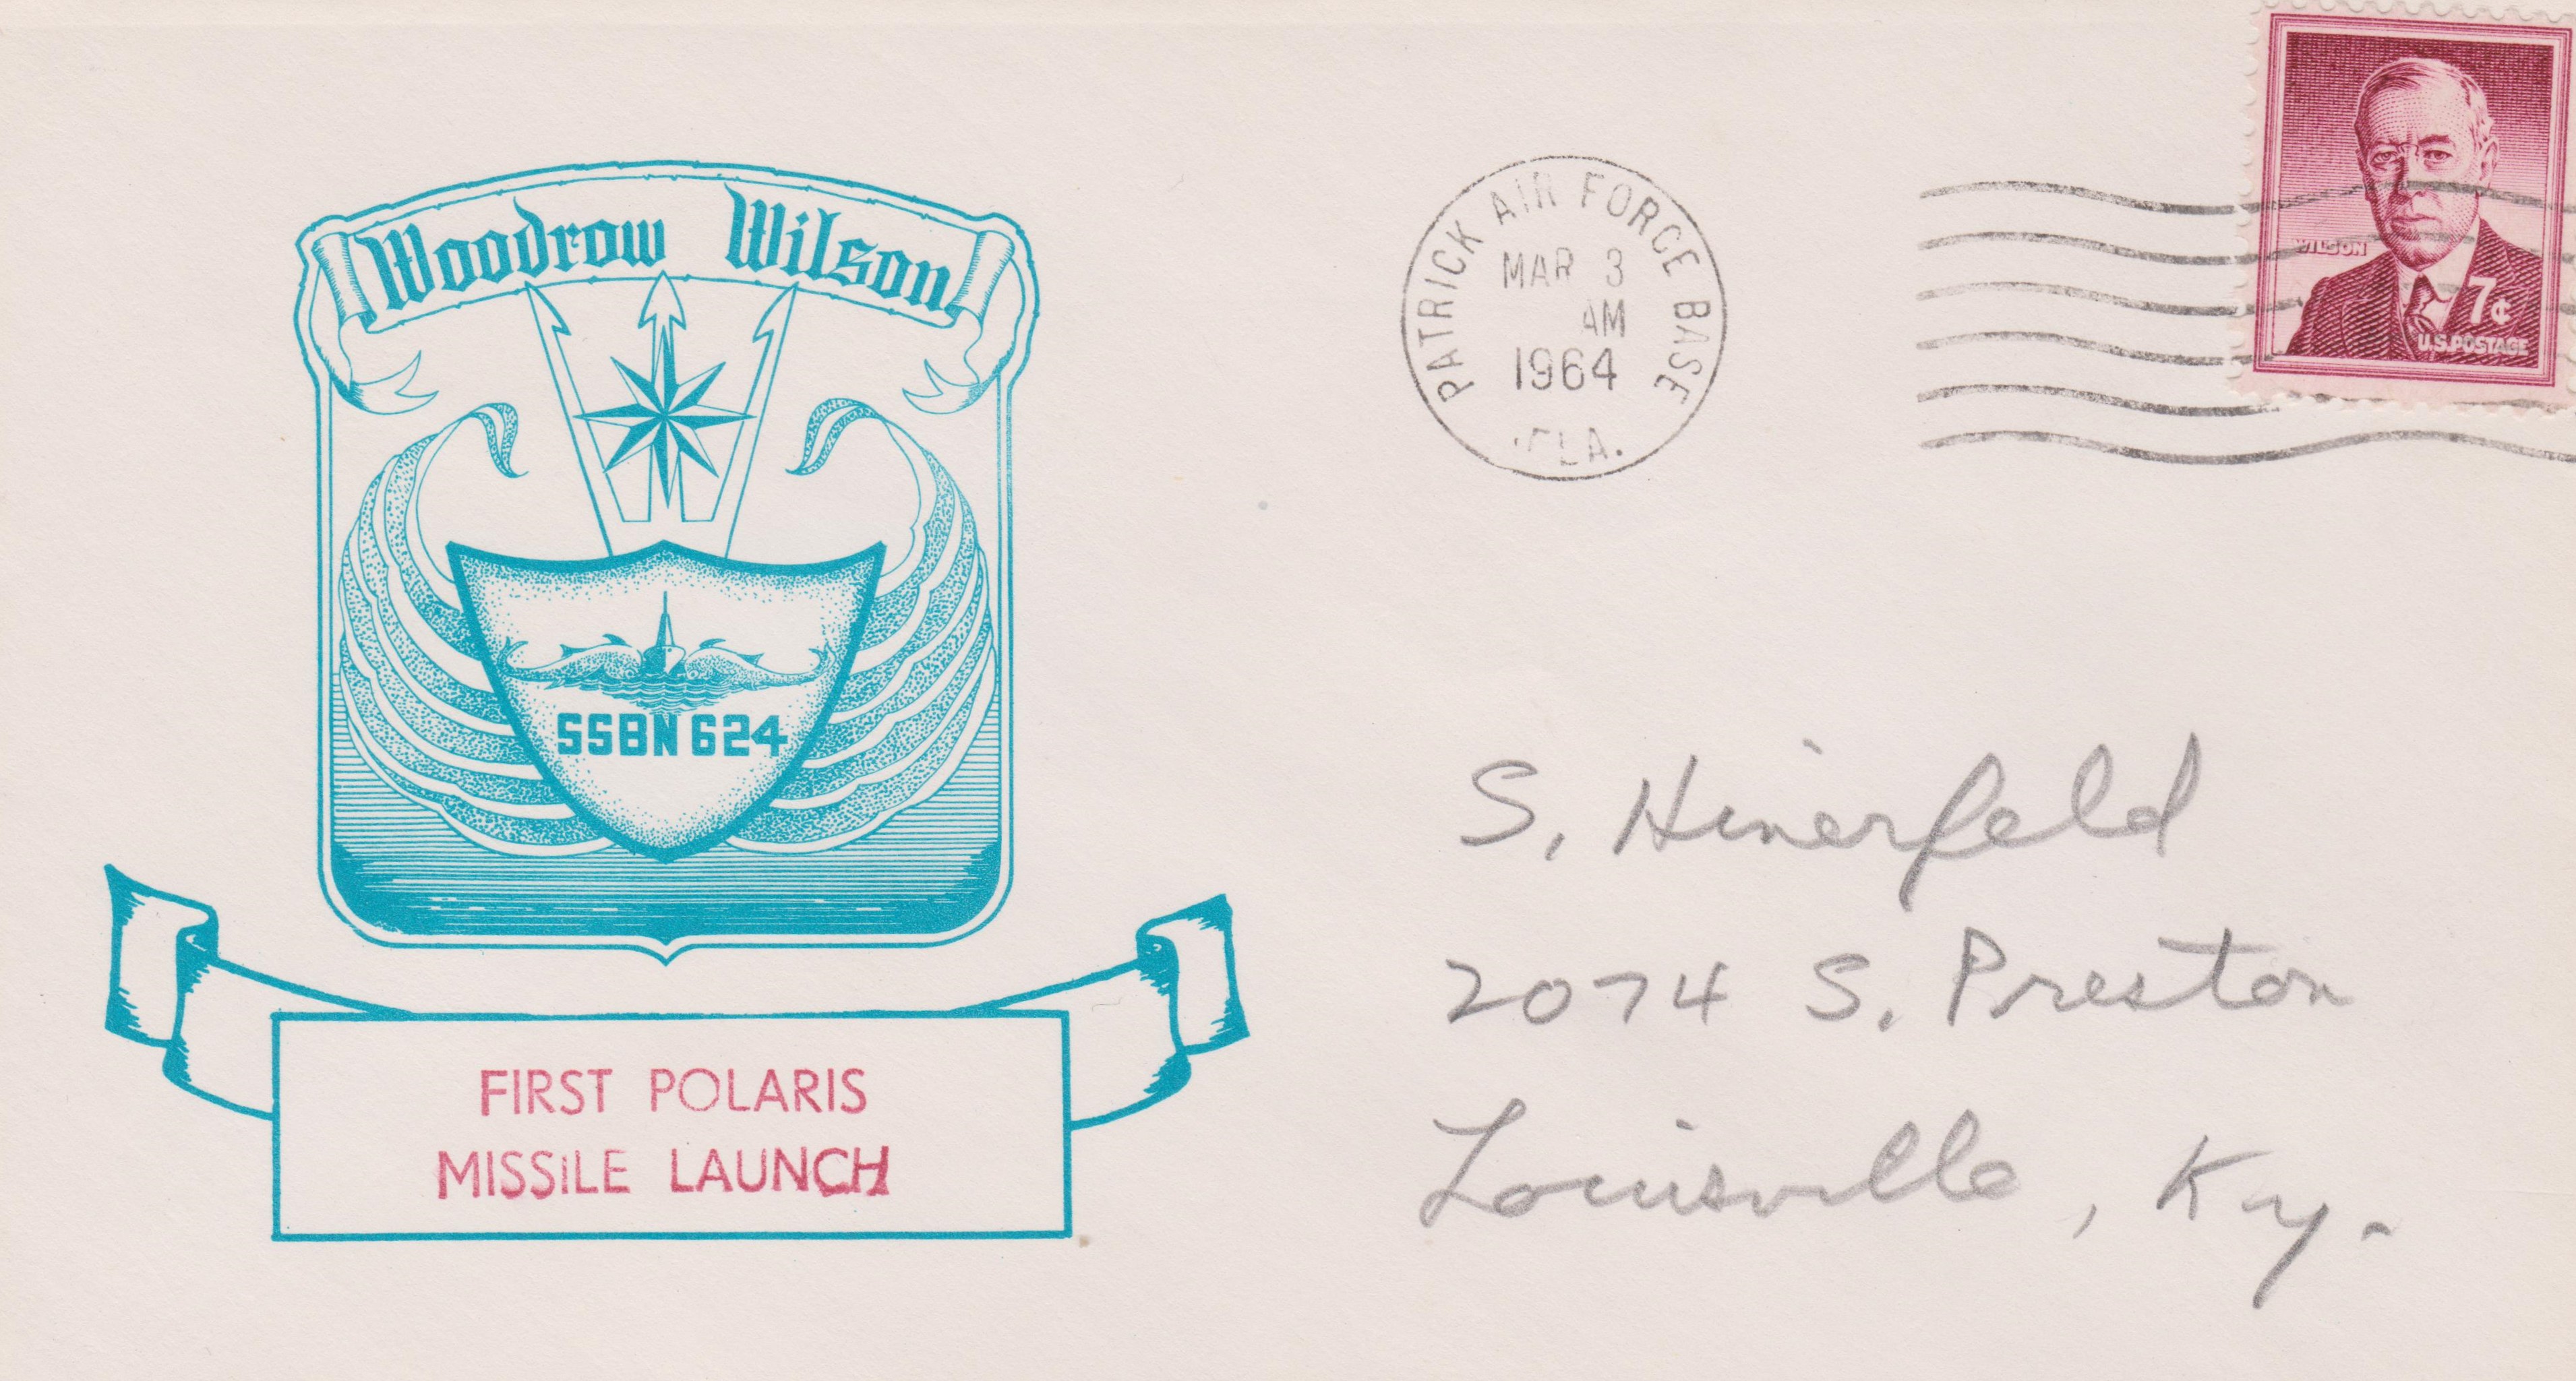 Woodrow Wilson
SSBN 624
FIRST POLARIS
MISSILE LAUNCH
PATRICK AIR FORCE BASE
MAR 3
AM
1964
FLA.
WILSON
7¢
U.S. POSTAGE
S. Hinerfeld
2074 S. Preston
Louisville, Ky.